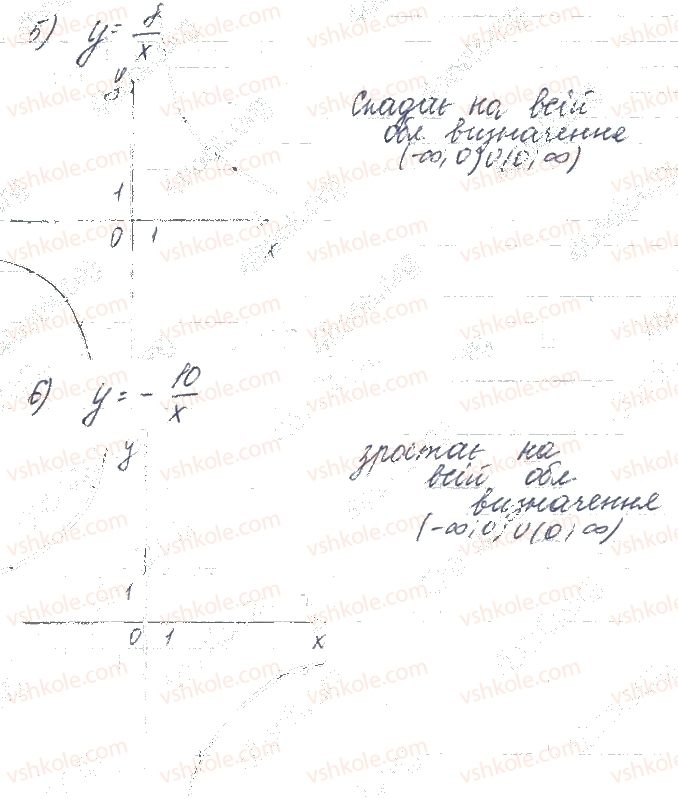 5) y = 8/x
y
Спадає на всій
обл визначення
(-∞; 0) U (0; ∞)
1
0 1 x
6) y = - 10/x
y
зростає на
всій обл
визначення
(-∞; 0) U (0; ∞)
1
0 1 x
vshkole.com